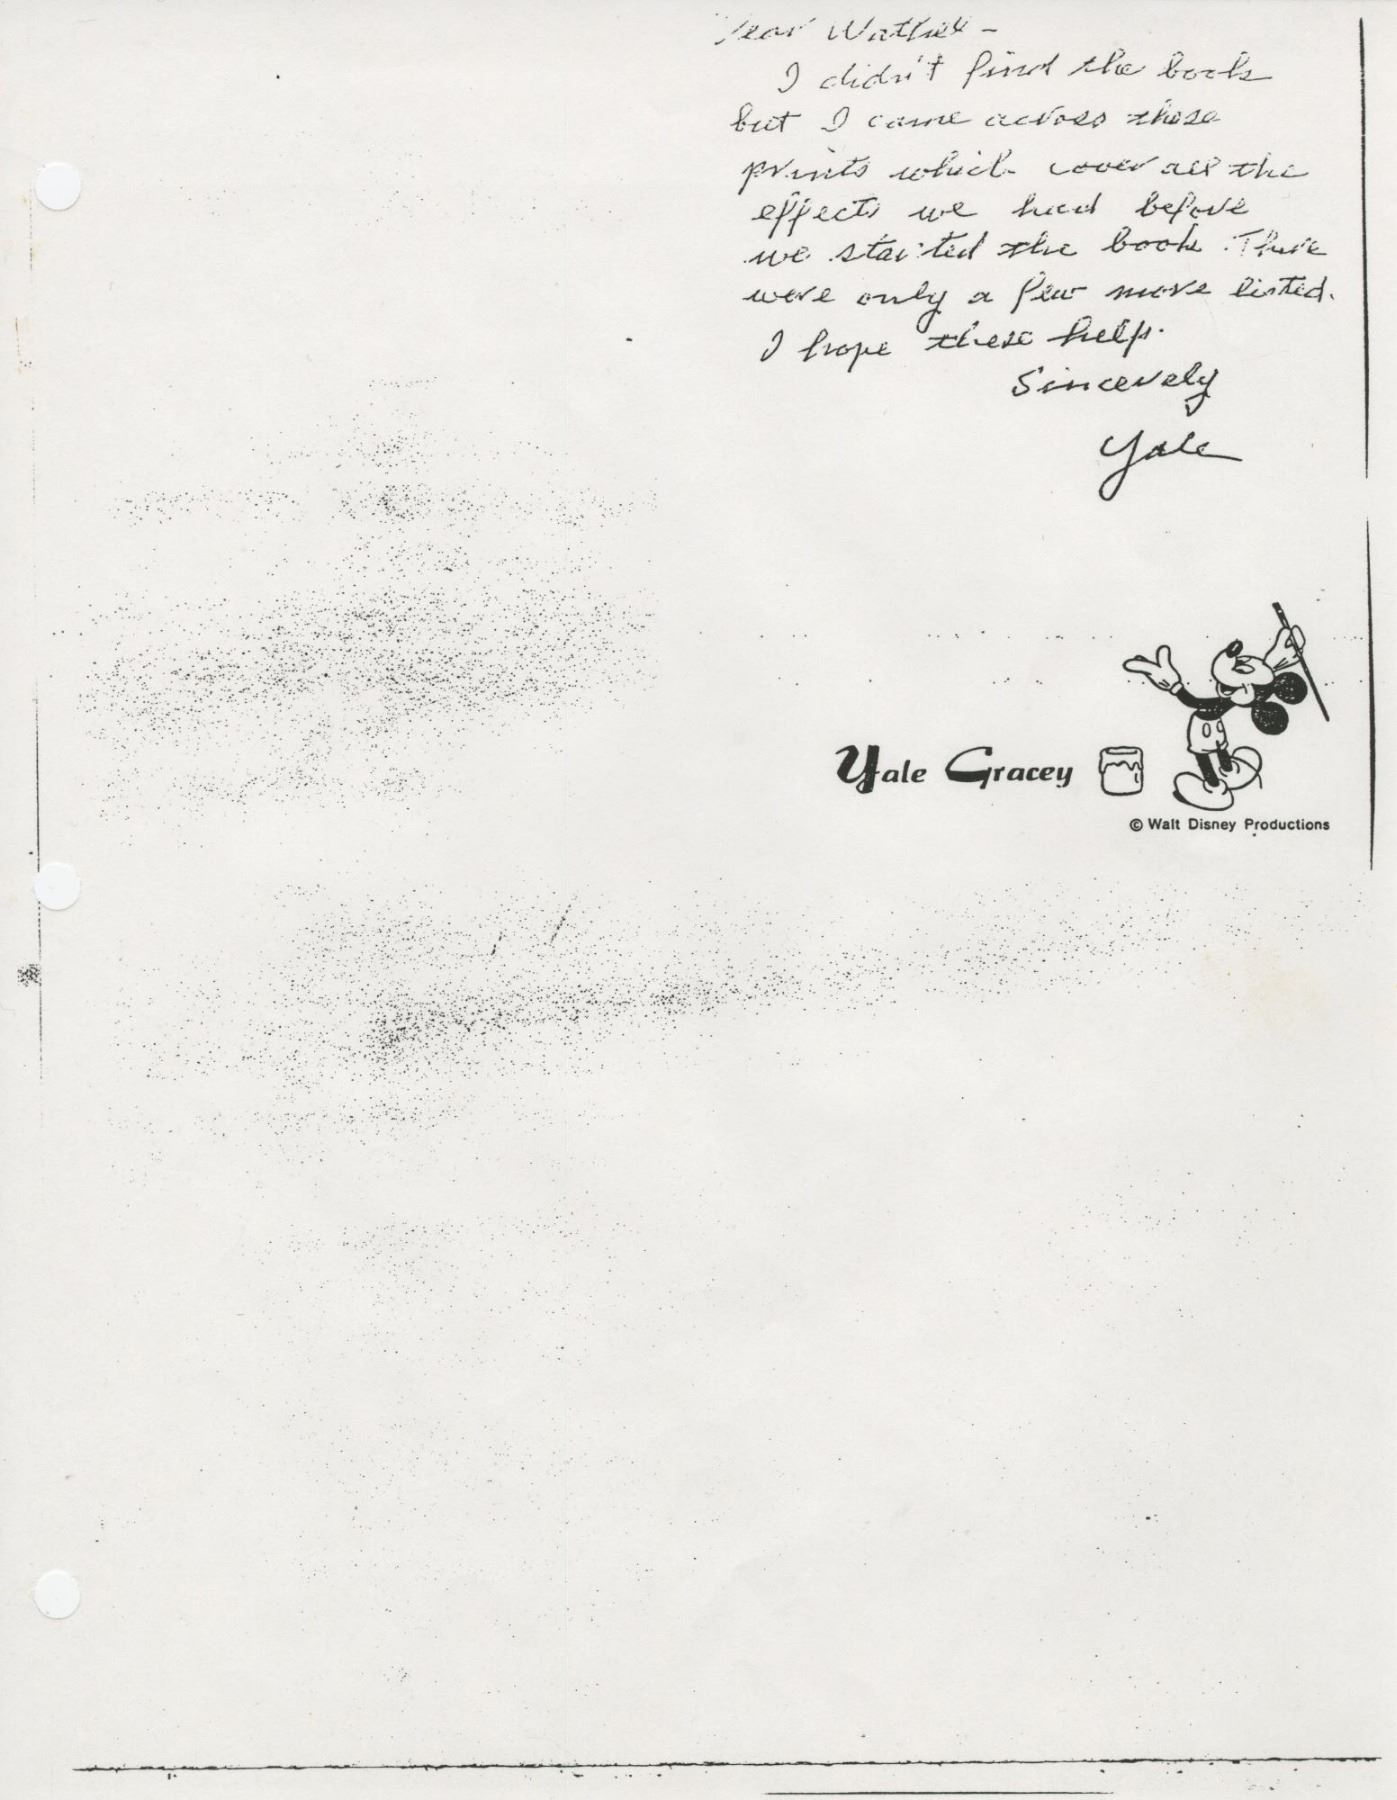 Dear Wathel -
I didn't find the book
but I came across these
prints which cover all the
effects we had before
we started the book. There
were only a few more listed.
I hope these help.
Sincerely
Yale
Yale Gracey
© Walt Disney Productions